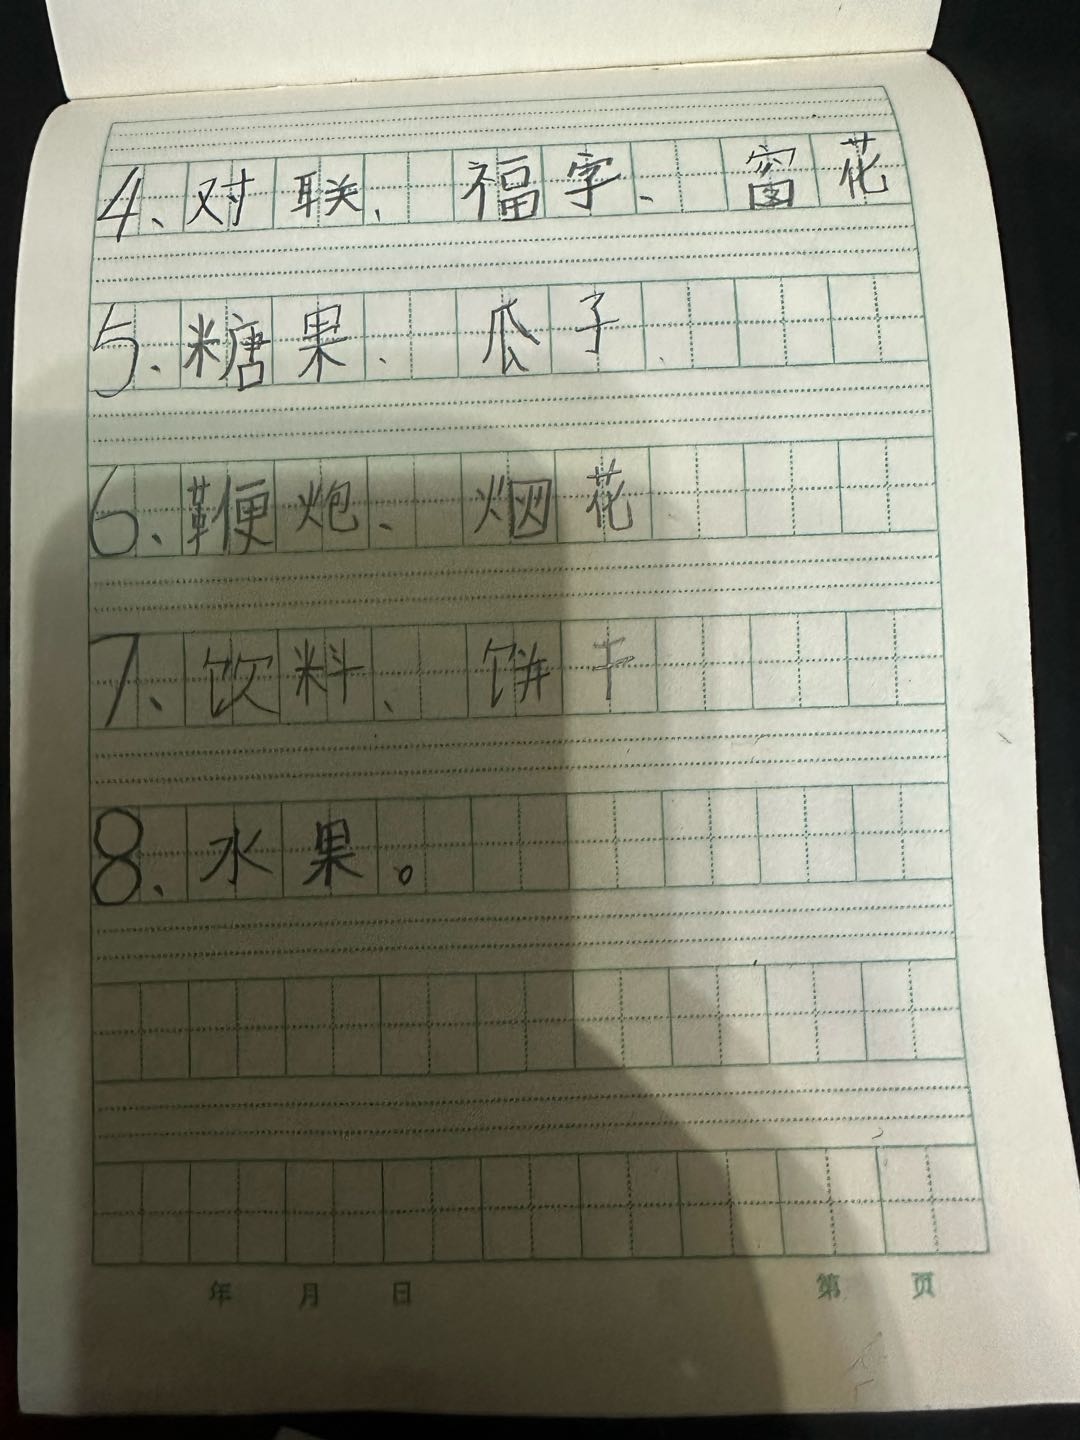 4、对联、福字、窗花
5、糖果、瓜子、
6、鞭炮、烟花
7、饮料、饼干
8、水果。
年 月 日 第 页